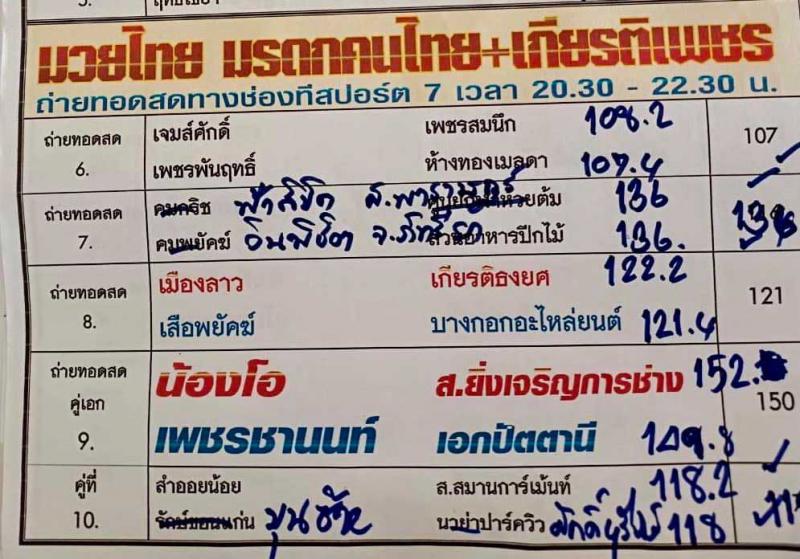 5.
มวยไทย มรดกคนไทย+เกียรติเพชร
ถ่ายทอดสดทางช่องทีสปอร์ต 7 เวลา 20.30 - 22.30 น.
ถ่ายทอดสด 6. เจมส์ศักดิ์ เพชรสมนึก 108.2 107
เพชรพันฤทธิ์ ห้างทองเมลดา 107.4
ถ่ายทอดสด 7. 136 136
136.
ถ่ายทอดสด 8. เมืองลาว เกียรติธงยศ 122.2 121
เสือพยัคฆ์ บางกอกอะไหล่ยนต์ 121.4
ถ่ายทอดสด คู่เอก 9. น้องโอ ส.ยิ่งเจริญการช่าง 152. 150
เพชรชานนท์ เอกปัตตานี 149.8
คู่ที่ 10. ลำออยน้อย ส.สมานการ์เม้นท์ 118.2
นวย่าปาร์ควิว 118